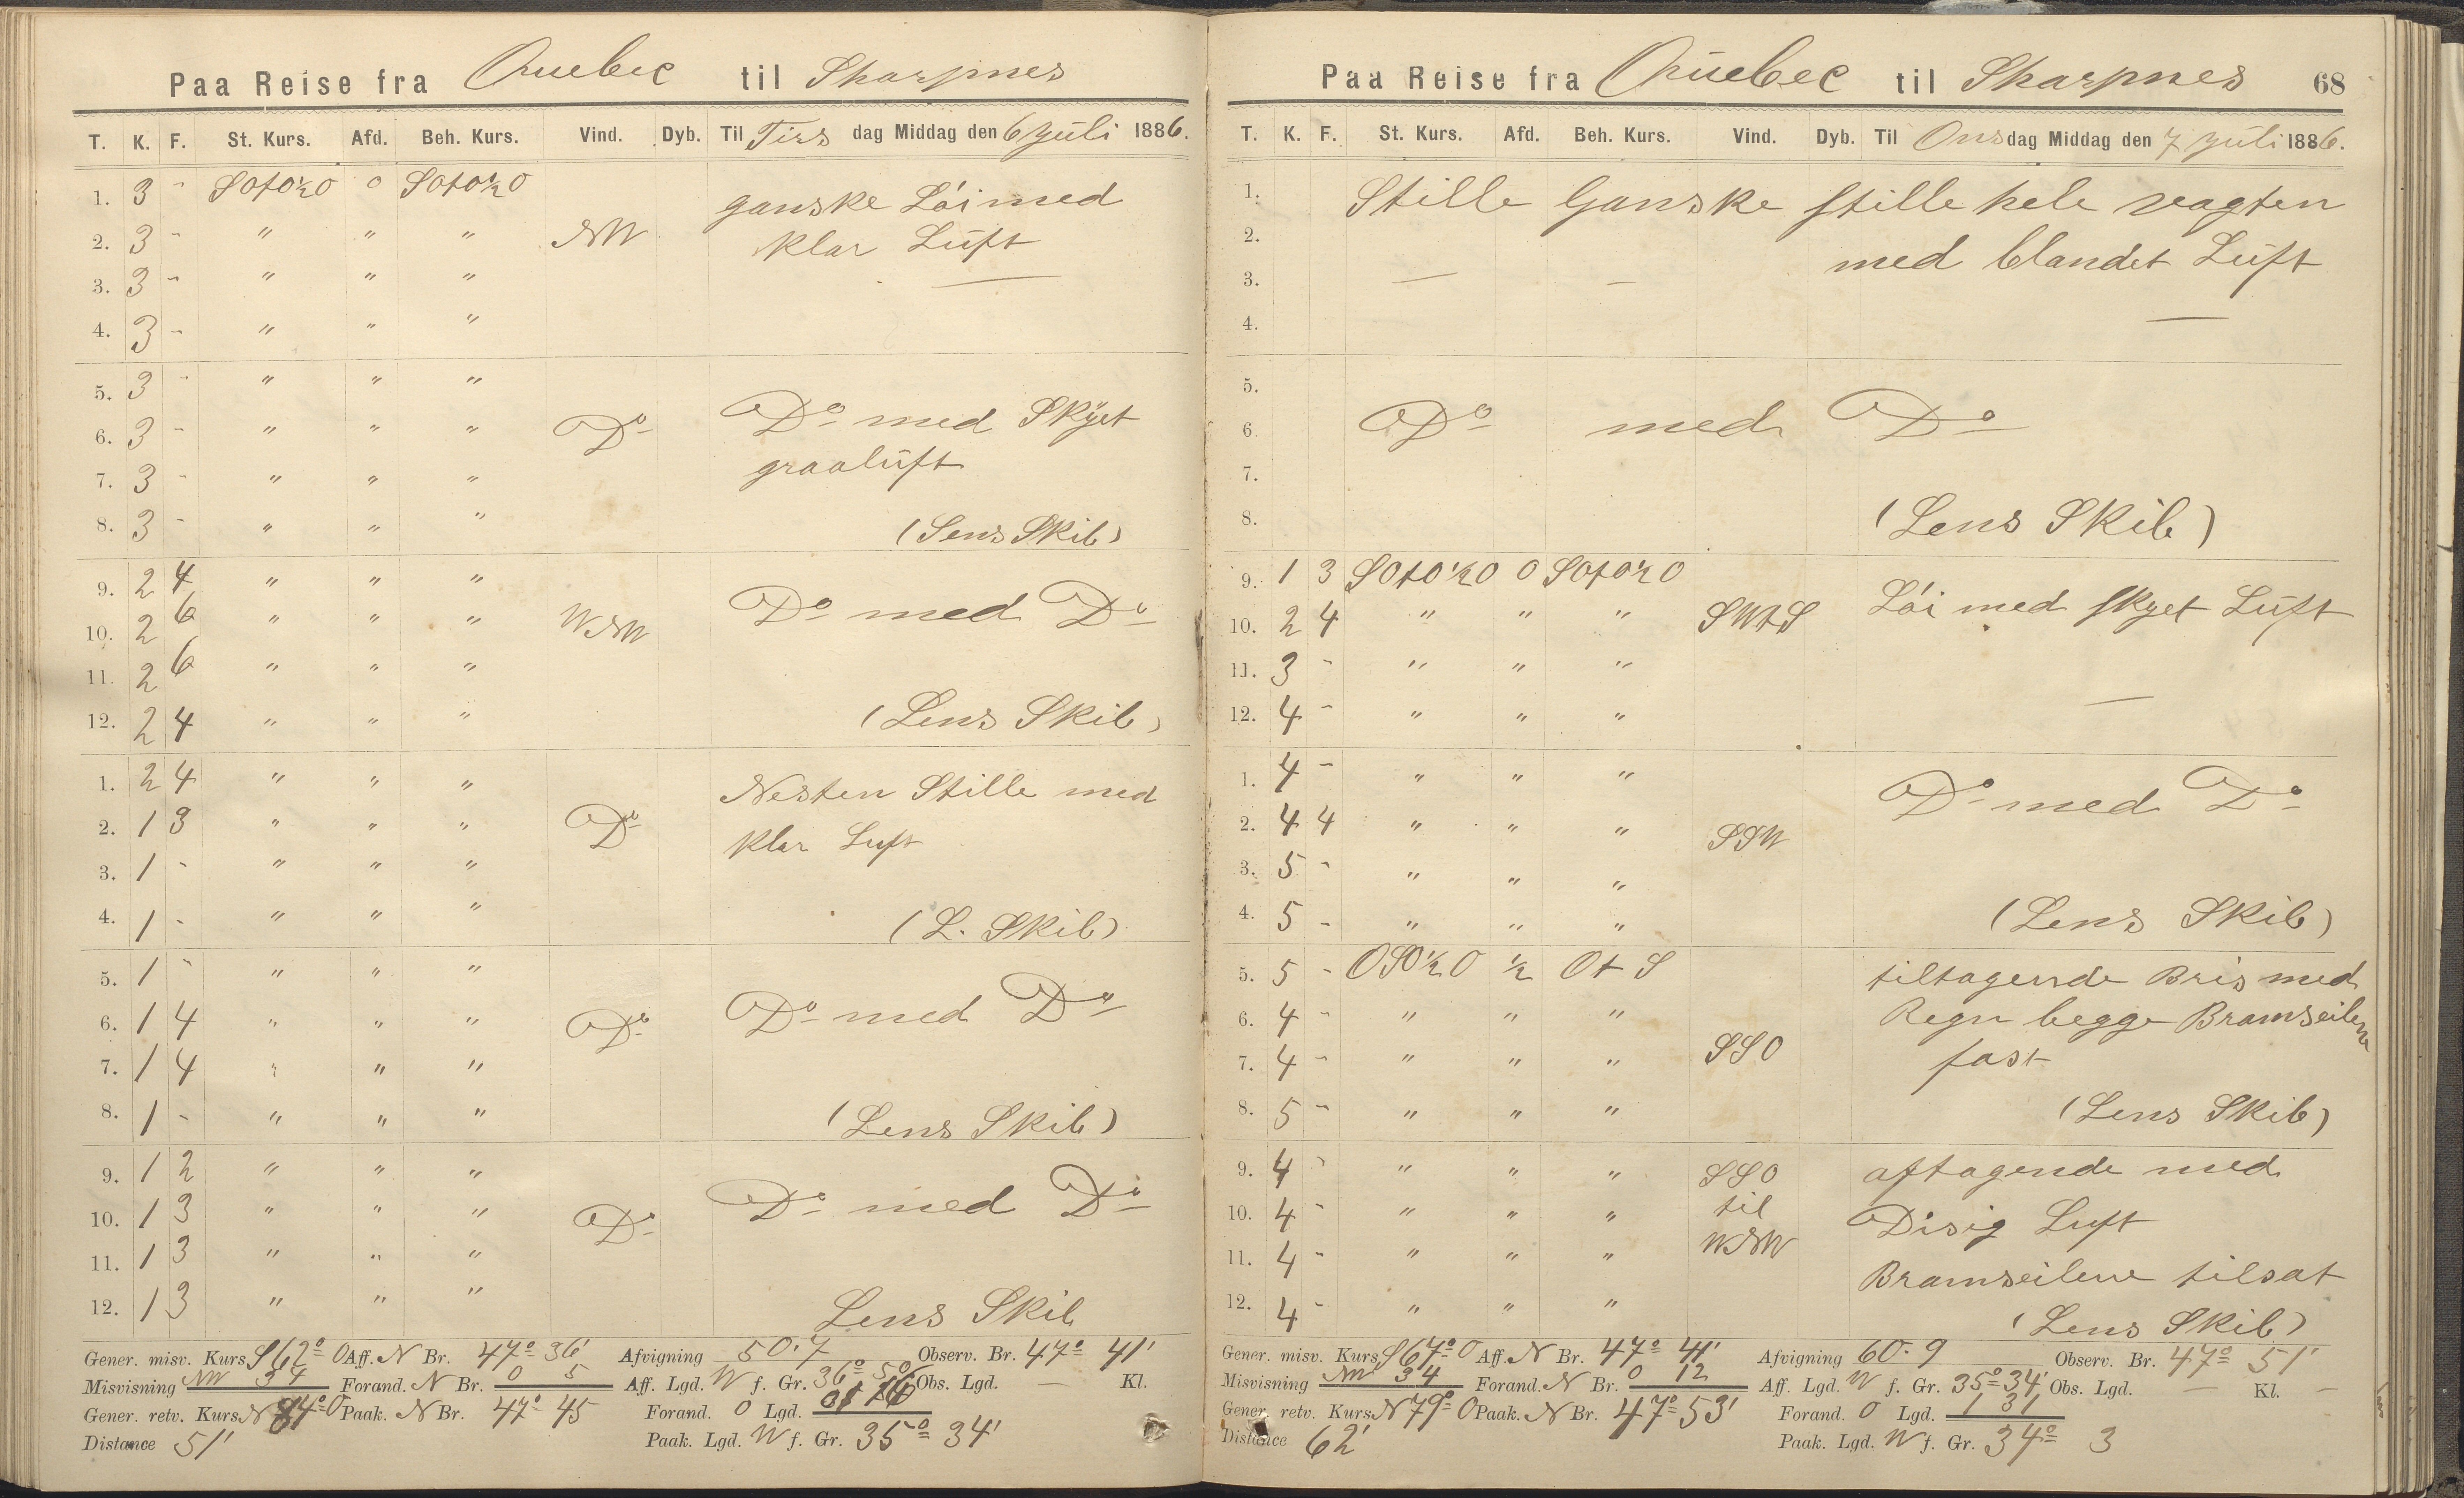 Paa Reise fra Quebec til Sharpnes
T. K. F. St. Kurs. Afd. Beh. Kurs. Vind. Dyb. Til Tirs dag Middag den 6 Juli 1886.
1. 3 - SOtO½O 0 SOtO½O ganske Löi med
2. 3 - " " " NW klar Luft
3. 3 - " " " —
4. 3 - " " "
5. 3 - " " "
6. 3 - " " " Do Do med Skyet
7. 3 - " " " graaluft
8. 3 - " " " (Lens Skib)
9. 2 4 " " "
10. 2 6 " " " WNW Do med Do
11. 2 6 " " "
12. 2 4 " " " (Lens Skib)
1. 2 4 " " " Nesten Stille med
2. 1 3 " " " Do
3. 1 - " " " klar Luft
4. 1 - " " " (L. Skib)
5. 1 - " " "
6. 1 4 " " " Do Do med Do
7. 1 4 " " "
8. 1 - " " " (Lens Skib)
9. 1 2 " " "
10. 1 3 " " " Do Do med Do
11. 1 3 " " "
12. 1 3 " " " Lens Skib
Gener. misv. Kurs S 62° O Aff. N Br. 47° 36' Afvigning 50.7 Observ. Br. 47° 41'
Misvisning NW 34 Forand. N Br. 0 5 Aff. Lgd. W f. Gr. 36° 50' Obs. Lgd. — Kl.
Gener. retv. Kurs N 84° O Paak. N Br. 47° 45 Forand. O Lgd. 1 16
Distance 51' Paak. Lgd. W f. Gr. 35° 34'
Paa Reise fra Quebec til Sharpnes 68
T. K. F. St. Kurs. Afd. Beh. Kurs. Vind. Dyb. Til Onsdag Middag den 7 Juli 1886.
1. Stille Ganske stille hele vagten
2. med blandet Luft
3. — —
4. —
5.
6. Do med Do
7.
8. (Lens Skib)
9. 1 3 SOtO½O 0 SOtO½O
10. 2 4 " " " SWtS Löi med skyet Luft
11. 3 - " " "
12. 4 - " " " —
1. 4 - " " " Do med Do
2. 4 4 " " " SSW
3. 5 - " " "
4. 5 - " " " (Lens Skib)
5. 5 - OSO½O ½ OtS tiltagende Bris med
6. 4 - " " " Regn begge Bramseilene
7. 4 - " " " SSO fast
8. 5 - " " " (Lens Skib)
9. 4 - " " " SSO aftagende med
10. 4 - " " " til Disig Luft
11. 4 - " " " WNW Bramseilene tilsat
12. 4 - " " " (Lens Skib)
Gener. misv. Kurs S 67° O Aff. N Br. 47° 41' Afvigning 60.9 Observ. Br. 47° 51'
Misvisning NW 34 Forand. N Br. 0 12 Aff. Lgd. W f. Gr. 35° 34' Obs. Lgd. — Kl. —
Gener. retv. Kurs N 79° O Paak. N Br. 47° 53' Forand. O Lgd. 1 31
Distance 62' Paak. Lgd. W f. Gr. 34° 3